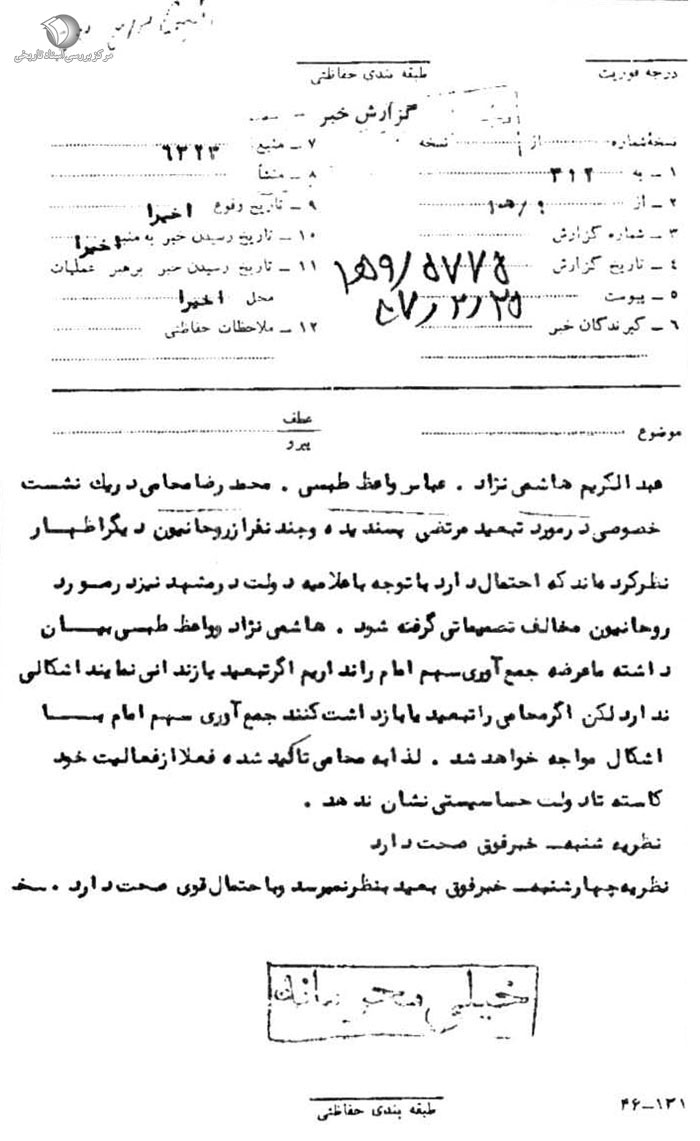 مرکز بررسی اسناد تاریخی
درجه فوریت
طبقه بندی حفاظتی
گزارش خبر
نسخه شماره از نسخه
۱ ـ به ۳۱۲
۲ ـ از
۳ ـ شماره گزارش ۵۷۷۵/۹ه۱
۴ ـ تاریخ گزارش ۵۷/۲/۲۵
۵ ـ پیوست
۶ ـ گیرندگان خبر
۷ ـ منبع ۶۲۲۳
۸ ـ منشأ
۹ ـ تاریخ وقوع اخیرا
۱۰ ـ تاریخ رسیدن خبر به منبع اخیرا
۱۱ ـ تاریخ رسیدن خبر برهبر عملیات
محل اخیرا
۱۲ ـ ملاحظات حفاظتی
موضوع
عطف
پیرو
عبدالکریم هاشمی نژاد . عباس واعظ طبسی . محمد رضا محامی دریك نشست
خصوصی درمورد تبعید مرتضی پسندیده وچند نفرازروحانیون دیگراظهار
نظرکرده اند که احتمال دارد با توجه باعلامیه دولت درمشهد نیزدرمورد
روحانیون مخالف تصمیماتی گرفته شود . هاشمی نژاد وواعظ طبسی بیان
داشته ماعرضه جمع آوری سهم امام رانداریم اگرتبعید یازندانی نمایند اشکالی
ندارد لکن اگرمحامی راتبعید یابازداشت کنند جمع آوری سهم امام با
اشکال مواجه خواهد شد . لذا به محامی تاکید شده فعلا ازفعالیت خود
کاسته تادولت حساسیتی نشان ندهد .
نظریه شنبه ـ خبرفوق صحت دارد
نظریه چهارشنبه ـ خبرفوق بعید بنظرنمیرسد وباحتمال قوی صحت دارد .
خیلی محرمانه
طبقه بندی حفاظتی
۴۶ـ۱۳۱